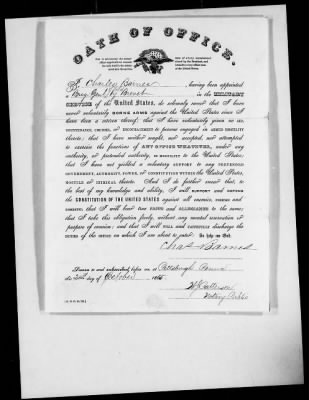 OATH OF OFFICE.
I, Charles Barnes having been appointed
a Brig. Genl. by Brevet in the MILITARY
SERVICE of the United States, do solemnly swear that I have
never voluntarily BORNE ARMS against the United States since I
have been a citizen thereof; that I have voluntarily given no AID,
COUNTENANCE, COUNSEL, OR ENCOURAGEMENT to persons engaged in armed hostility
thereto; that I have neither sought, nor accepted, nor attempted
to exercise the functions of ANY OFFICE WHATEVER, under any
authority, or pretended authority, in HOSTILITY to the United States;
that I have not yielded a voluntary support to any PRETENDED
GOVERNMENT, AUTHORITY, POWER, OR CONSTITUTION WITHIN THE UNITED STATES,
HOSTILE OR INIMICAL thereto. And I do further swear that, to
the best of my knowledge and ability, I will SUPPORT AND DEFEND
THE CONSTITUTION OF THE UNITED STATES against all enemies, FOREIGN AND
DOMESTIC; that I will bear TRUE FAITH AND ALLEGIANCE to the same;
that I take this obligation freely, without any mental reservation or
purpose of evasion; and that I will WELL AND FAITHFULLY DISCHARGE THE
DUTIES OF THE OFFICE on which I am about to enter: So help me God.
Chas Barnes
Sworn to and subscribed before me at Pittsburgh Penna
this day of October 1865
Notary Public